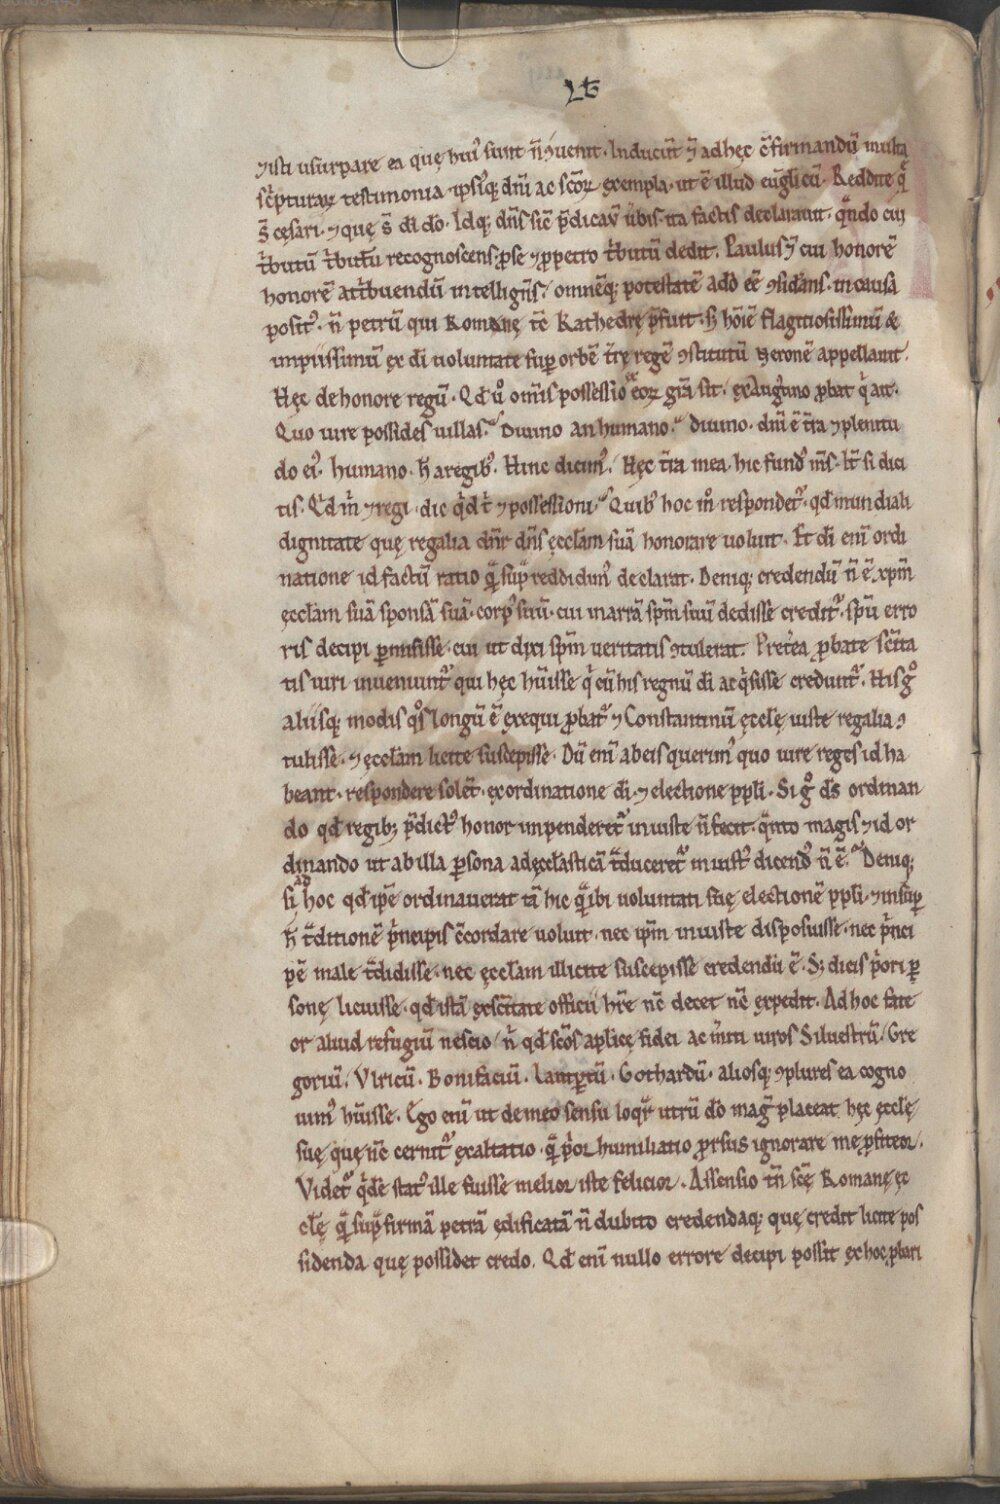 ⁊isti usurpare ea quę hui᷒ sunt n̄ ꝯuenit. Inducunt̄ ⁊ adhęc c̄firmandū multa
sc̄pturaꝝ testimonia. ipsiꝰq; dn̄i ac sc̄oꝝ exempla. ut ē illud euḡlicū. Reddite q̄
s̄ cęsari. ⁊ quę s̄ di do. Idq; dn̄s sic̄ p̄dicauͥ ūbis. ita factis declarauit. qn̄do cui
tͥbutū tͥbutū recognoscens. ꝓse ⁊ ꝓpetro tͥbutū dedit. Paulus ⁊ cui honorē
honorē atͥbuendū intelligens. omnēq; potestatē ado eē ꝯsidans. in causa
positꝰ. n̄ petrū qui Romanę tc̄ Kathedrę p̄fuit. s; hoīē flagitiosissimū &
impiissimū ex di uoluntate sup orbē tͬrę regē ꝯstitutū Neronē appellauit.
Hęc de honore regū. Qd̄ uͦ om̄is possessio eoꝝ grā sit. exAugͭino ꝓbat qͥ ait.
Quo iure possides uillas. Diuino an humano. Diuino. dn̄i ē tͬra ⁊ plenitu
do eiꝰ. humano. h̄ aregibꝰ. Hinc dicimꝰ. Hęc tͬra mea. hic fundꝰ m̄s. Et̄ si dici
tis. Qͥd m̄ ⁊ regi. dic qͥd t̄ ⁊ possessioni. Quibꝰ hoc mͦ respondetᷣ. qd̄ mundiali
dignitate quę regalia dn̄r dn̄s ęccl̄am suā honorare uoluit. Et di eni̅ ordi
natione id factū ratio qͣ̄ supͣ reddidimꝰ declarat. Deniq; credendū n̄ ē xp̄m
ęccl̄am suā sponsā suā. corpꝰ suū. cui inarrā sp̄m suū dedisse creditᷣ. sp̄u erro
ris decipi ꝑmisisse. cui ut dixi sp̄m ueritatis ꝯtulerat. Pretͬea ꝓbate sc̄ita
tis uiri inueniuntᷣ qui hęc h̄uisse qͥ cū his regnū di acqͥsisse creduntᷣ. His gͦ
aliisq; modis qͦs longū ē exequi ꝓbatᷣ ⁊ Constantinū ęccl̄ę iuste regalia ꝯ
tulisse. ⁊ ęccl̄am licite suscepisse. Dū eni̅ abeis querimꝰ quo iure reges id ha
beant. respondere solēt. ex ordinatione di. ⁊ electione ppl̄i. Si gͦ ds̄ ordinan
do qd̄ regib; p̄dictꝰ honor impenderetᷣ iniuste n̄ fecit. qͣnto magis ⁊ id or
dinando ut ab illa ꝑsona adęcclasticā tͣduceretᷣ iniustꝰ dicendꝰ n̄ ē. Deniq;
si ad hoc qd̄ ip̄e ordinauerat tā hic qͣ̄ ibi uoluntati suę electionē ppl̄i. ⁊ insup
h̄ tͣditionē pͥncipis c̄cordare uoluit. nec ip̄m iniuste disposuisse. nec pͥnci
pē male tͣdidisse. nec ęccl̄am illicite suscepisse credendū ē. S; dicis pͥori ꝑ
sonę licuisse. qd̄ istā ex sc̄itate officii hr̄e nc̄ decet nc̄ expedit. Ad hoc fate
or aliud refugiū nescio. nͥ qd̄ sc̄os aplicę fidei ac mͬiti uiros Siluestrū. Gre
goriū. Vlricū. Bonifaciū. Lamꝑtū. Gothardū. aliosq; ꝯplures ea cogno
uimꝰ h̄uisse. Ego eni̅ ut de meo sensu loqͬ utrū do maḡ placeat hęc ęccl̄ę
suę quę nc̄ cernitᷣ exaltatio. qͣ̄ pͥor humiliatio ꝓrsus ignorare me ꝓfiteor.
Videtᷣ qͥdē statꝰ ille fuisse melior iste felicior. Assensio tn̄ sc̄ę Romanę ęc
cl̄ę qͣ̄ supͣ firmā petrā ędificatā n̄ dubito credendaq; quę credit licite pos
sidenda quę possidet credo. Qd̄ eni̅ nullo errore decipi possit ex hoc ꝓbari